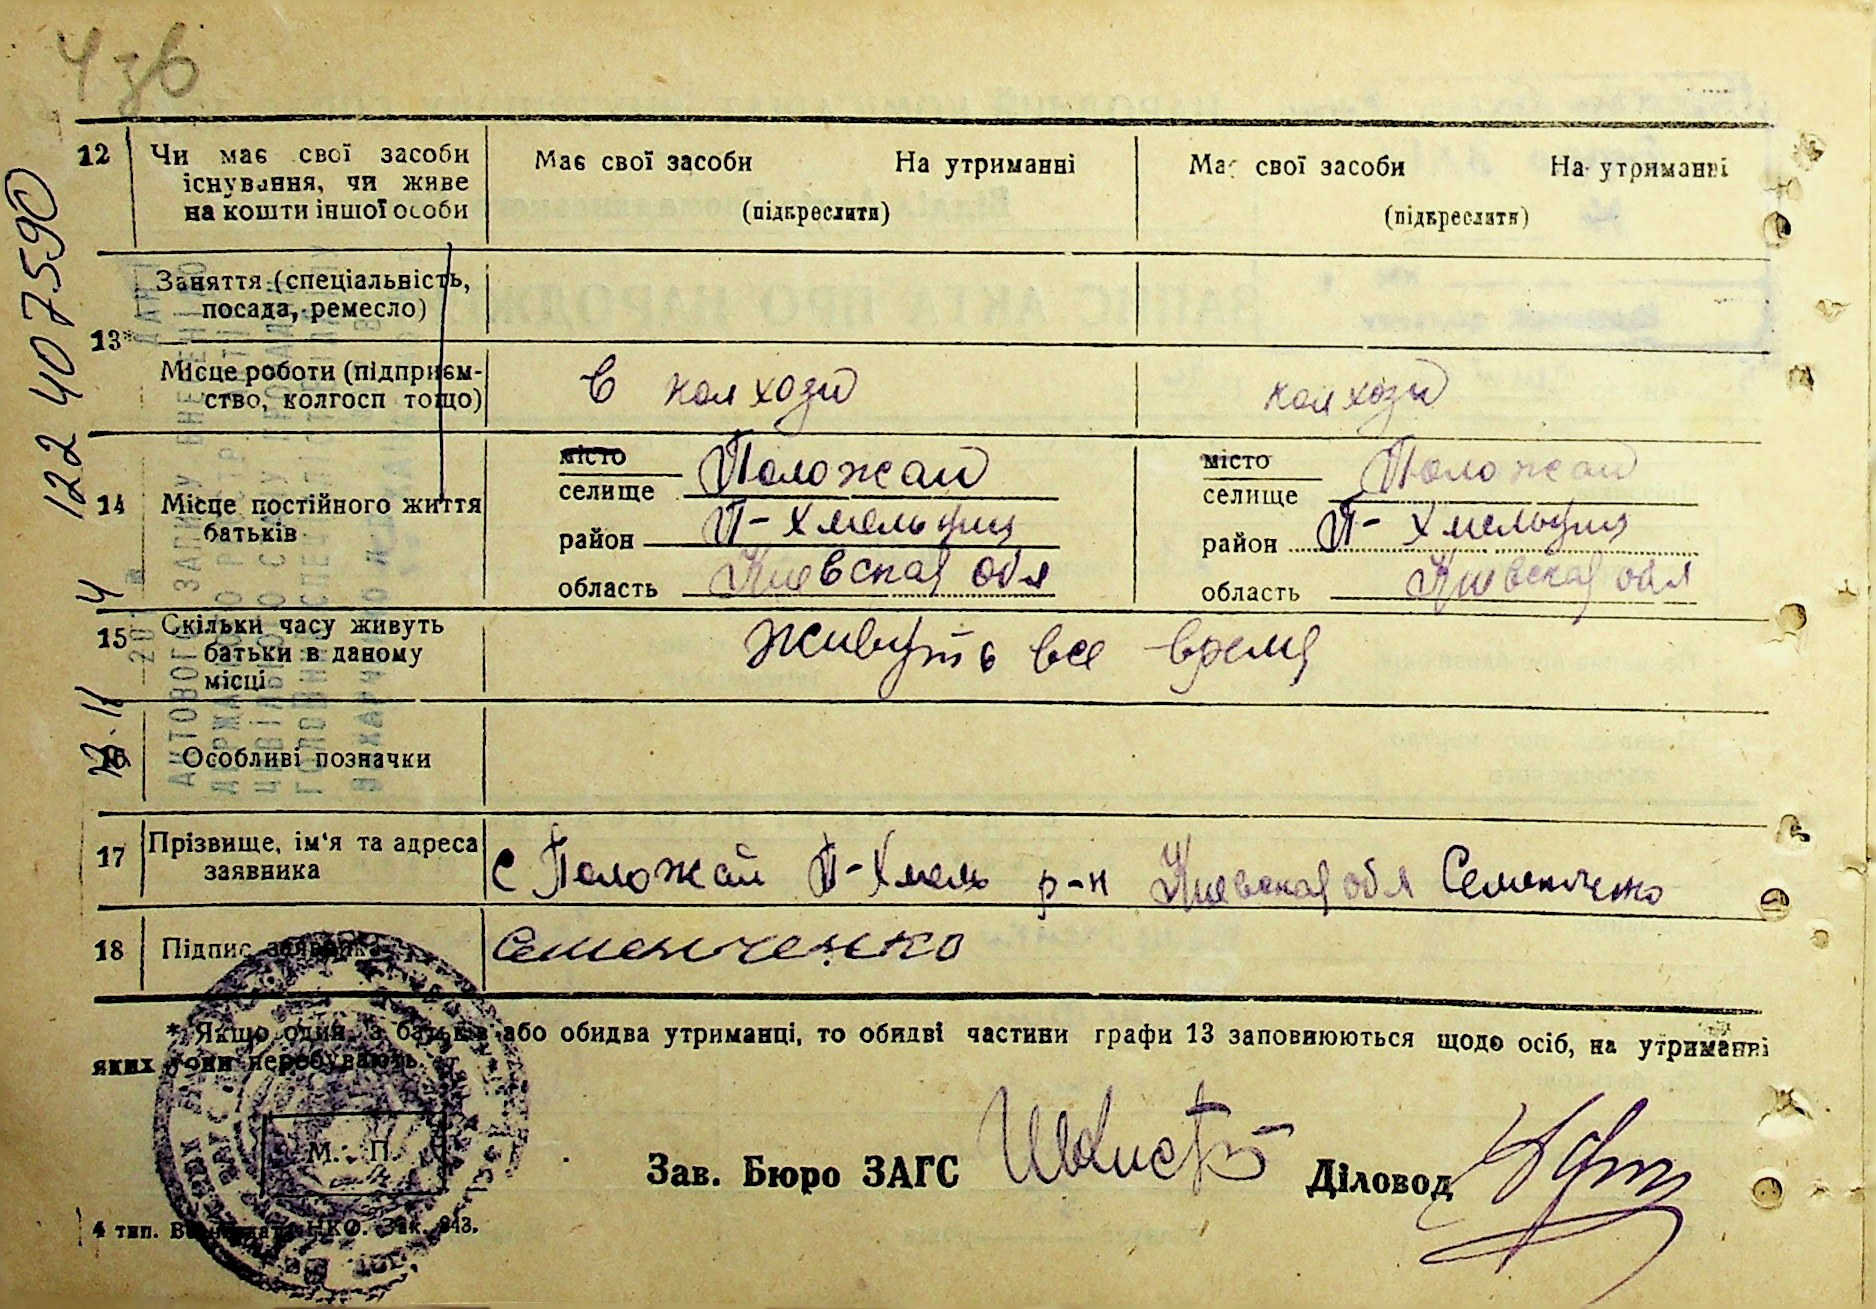 4зв
12 Чи має свої засоби Має свої засоби На утриманні Має свої засоби На утриманні
існування, чи живе
на кошти іншої особи (підкреслити) (підкреслити)
Заняття (спеціальність,
посада, ремесло)
13*
Місце роботи (підприєм- в колхози колхози
ство, колгосп тощо)
місто Положай місто Положай
селище селище
14 Місце постійного життя район П-Хмельниц район П-Хмельниц
батьків
область Киевская обл область Киевская обл
15 Скільки часу живуть живуть все время
батьки в даному
місці
16 Особливі позначки
17 Прізвище, ім'я та адреса
заявника с Положай П-Хмель р-н Киевская обл Семенченко
18 Підпис заявника Семенченко
* Якщо один з батьків або обидва утриманці, то обидві частини графи 13 заповнюються щодо осіб, на утриманні
яких вони перебувають.
М. П.
Зав. Бюро ЗАГС Діловод
4 тип. НКО. Зак. 943.
122 4075590